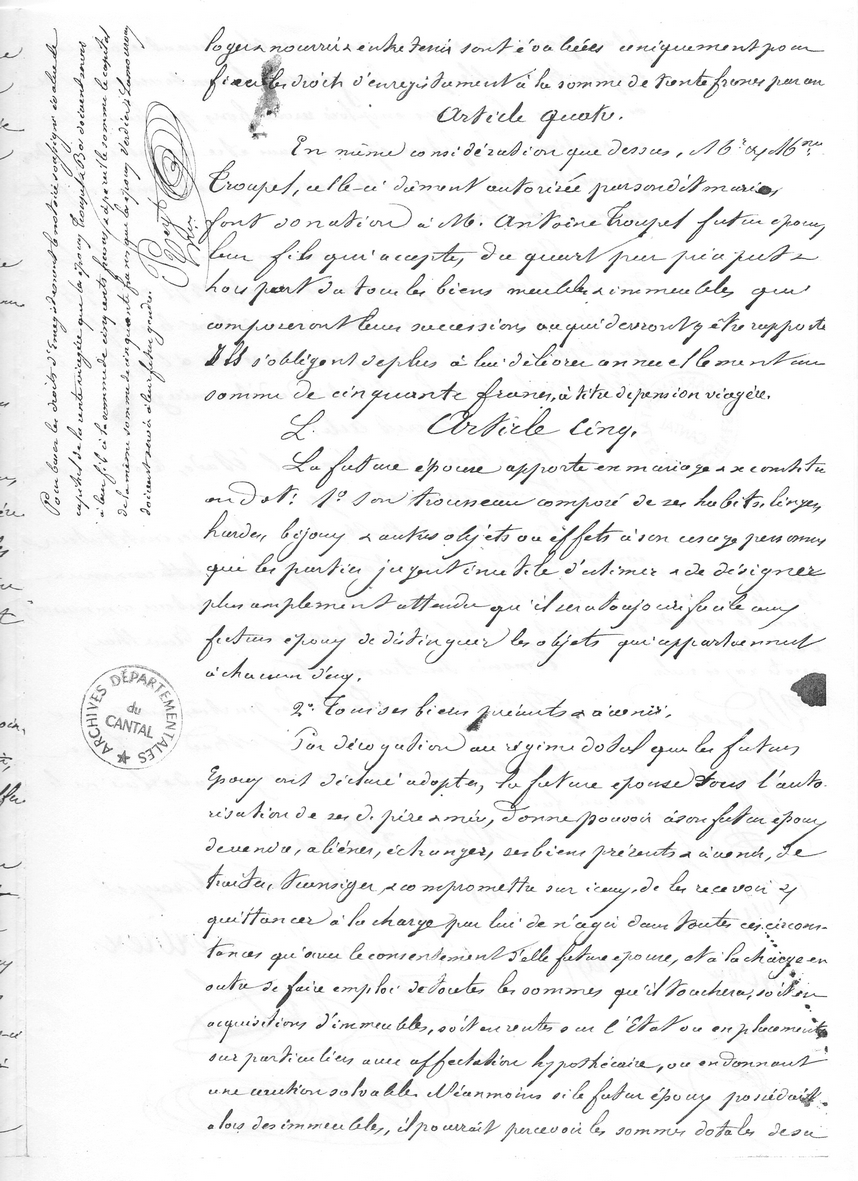 loger nourrir & entretenir sont évaluées uniquement pour
fixer les droits d'enregistrement à la somme de trente francs par an
Article quatre.
En même considération que dessus, Mr & Mme
Troupel, celle-ci dûment autorisée par son dit mari,
font donation à M. Antoine Troupel futur époux
leur fils qui accepte, du quart par préciput &
hors part de tous les biens meubles & immeubles qui
composeront leurs successions ou qui devront y être rapportés
Ils s'obligent de plus à lui délivrer annuellement une
somme de cinquante francs, à titre de pension viagère.
Article cinq.
La future épouse apporte en mariage & se constitue
en dot: 1o son trousseau composé de ses habits, linges,
hardes, bijoux & autres objets ou effets à son usage personnel
que les parties jugent inutile d'estimer & de désigner
plus amplement attendu qu'il sera toujours facile aux
futurs époux de distinguer les objets qui appartiennent
à chacun d'eux.
2o Tous ses biens présents & à venir.
Par dérogation au régime dotal que les futurs
époux ont déclaré adopter, la future épouse sous l'auto-
risation de ses dits père & mère, donne pouvoir à son futur époux
de vendre, aliéner, échanger, ses biens présents & à venir, de
traiter, transiger & compromettre sur iceux, de les recevoir &
quittancer à la charge par lui de n'agir dans toutes ces circons-
tances qu'avec le consentement d'elle future épouse, et à la charge en
outre de faire emploi de toutes les sommes qu'il touchera, soit en
acquisitions d'immeubles, soit en rentes sur l'Etat ou en placements
sur particuliers avec affectation hypothécaire, ou en donnant
une caution solvable. Néanmoins si le futur époux possédait
alors des immeubles, il pourrait percevoir les sommes dotales de sa
Pour baser les droits d'Enregistrement le notaire soussigné évalue le
capital de la rente viagère que les époux Troupel & Boi doivent servir
à leur fils à la somme de cinq cents francs, & à pareille somme le capital
de la même somme de cinquante francs que les époux Verdier & Lamouroux
doivent servir à leur futur gendre
ARCHIVES DÉPARTEMENTALES
du
CANTAL